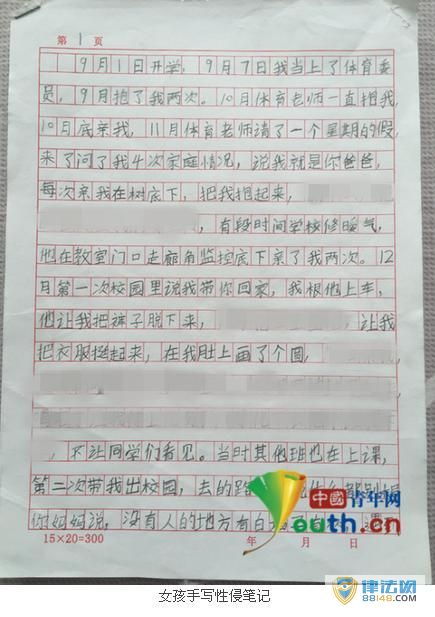 第 1 页
9月1日开学，9月7日我当上了体育委
员，9月抱了我两次。10月体育老师一直抱我，
10月底亲我，11月体育老师请了一个星期的假
来了问了我4次家庭情况，说我就是你爸爸，
每次亲我在树底下，把我抱起来，
，有段时间学校修暖气，
他在教室门口走廊角监控底下亲了我两次。12
月第一次校园里说我带你回家，我根他上车，
他让我把裤子脱下来，让我
把衣服挺起来，在我肚上画了个圆，
，不让同学们看见。当时其他班也在上课，
第二次带我出校园，去的路
你妈妈说，没有人的地方有白
15×20=300 年 月 日
中国青年网
youth.cn
律法网
88148.com
女孩手写性侵笔记